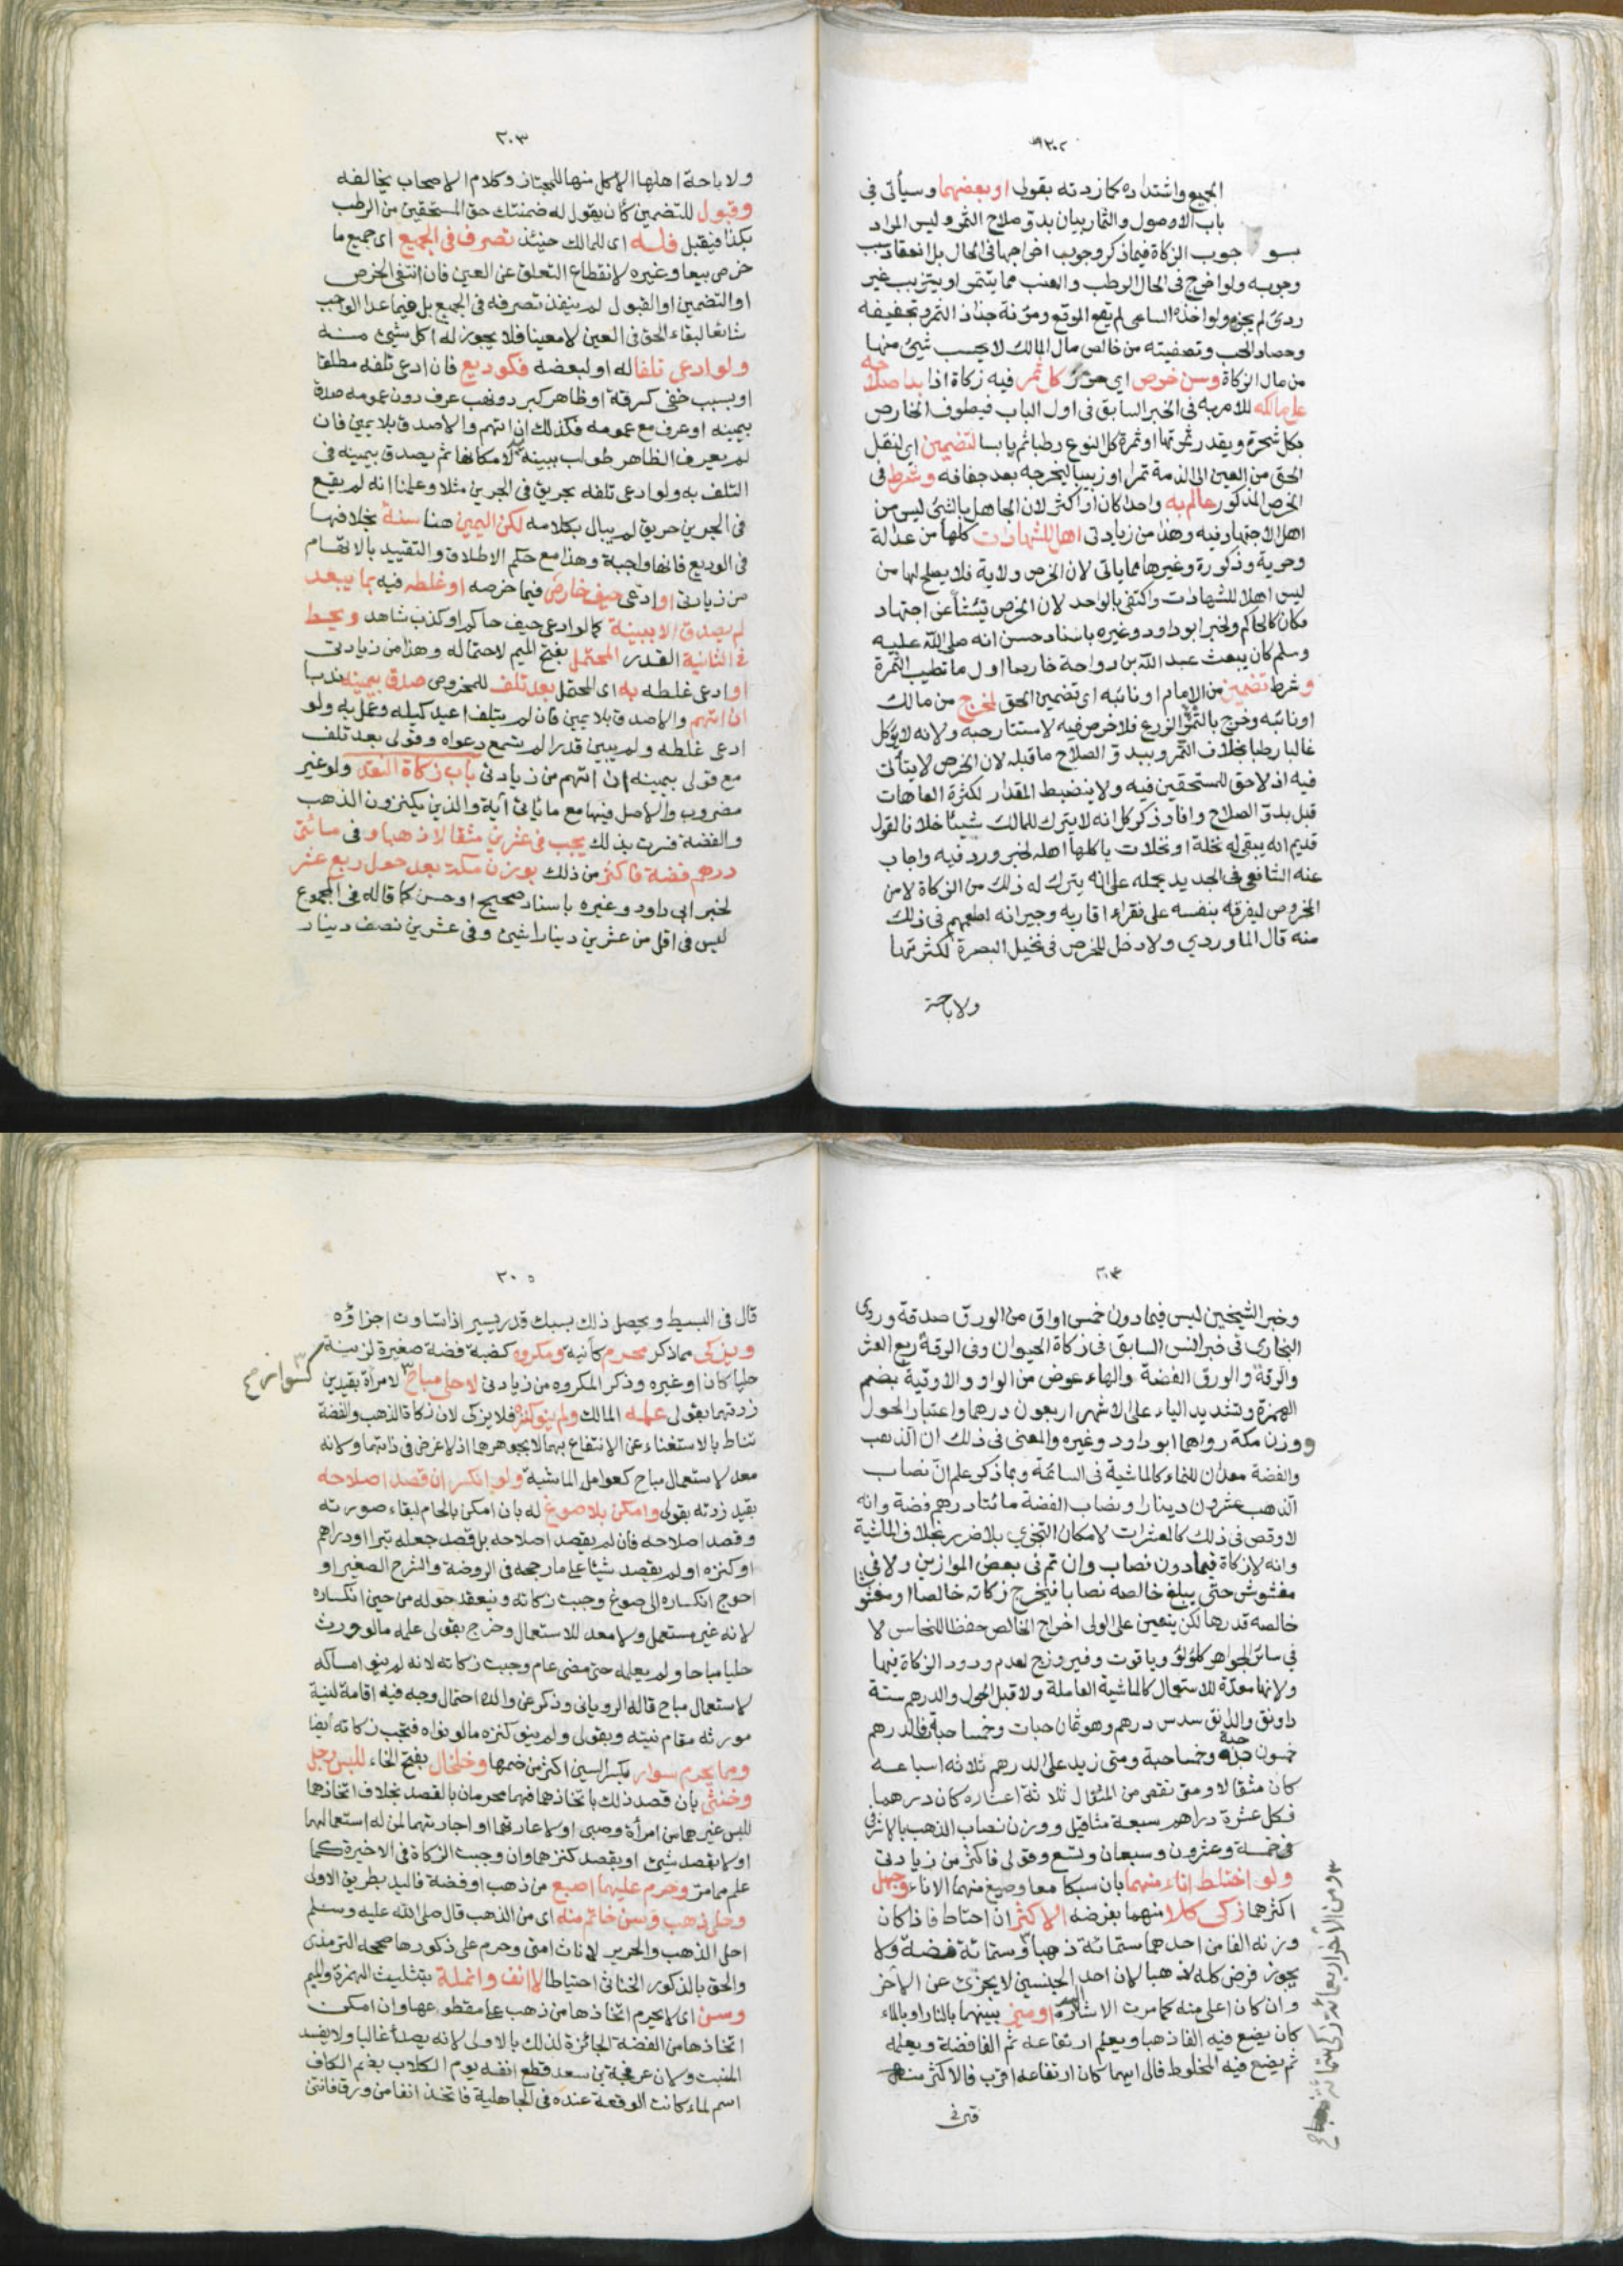 ٢٠٢
الجميع واشتداده كما زدته بقولي او بعضهما وسيأتي في
باب الاصول والثمار بيان بدو صلاح الثمر وليس المراد
بو جوب الزكاة فيما ذكر وجوب اخراجها في الحال بل انعقاد سبب
وجوبه ولو اخرج في الحال الرطب والعنب مما يتتمر او يتزبب غير
ردئ لم يجزه ولو اخذه الساعي لم يقع الموقع ومؤنة جذاذ الثمر وتجفيفه
وحصاد الحب وتصفيته من خالص مال المالك لا يحسب شئ منها
من مال الزكاة وسن خرص اي حزر كل ثمر فيه زكاة اذا بدا صلاحه
على مالكه للامر به في الخبر السابق في اول الباب فيطوف الخارص
بكل شجرة ويقدر ثمرتها او ثمرة كل النوع رطبا ثم يابسا لتضمين اي لنقل
الحق من العين الى الذمة تمرا او زبيبا ليخرجه بعد جفافه وشرط في
الخرص المذكور عالم به واحدا كان او اكثر لان الجاهل بالشئ ليس من
اهل الاجتهاد فيه وهذا من زيادتي اهل للشهادات كلها من عدالة
وحرية وذكورة وغيرها مما ياتي لان الخرص ولاية فلا يصلح لها من
ليس اهلا للشهادات واكتفى بالواحد لان الخرص ينشأ عن اجتهاد
فكان كالحاكم ولخبر ابو داود وغيره باسناد حسن انه صلى الله عليه
وسلم كان يبعث عبد الله بن رواحة خارصا اول ما تطيب الثمرة
وشرط تضمين من الامام او نائبه اي تضمين الحق لمخرج من مالك
او نائبه وخرج بالثمر الزرع فلا خرص فيه لاستتار حبه ولانه لا يؤكل
غالبا رطبا بخلاف الثمر وببدو الصلاح ما قبله لان الخرص لا يتأتى
فيه اذ لا حق للمستحقين فيه ولا ينضبط المقدار لكثرة العاهات
قبل بدو الصلاح وافاد ذكر كل انه لا يترك للمالك شيئا خلافا لقول
قديم انه يبقى له نخلة او نخلات ياكلها اهله لخبر ورد فيه واجاب
عنه الشافعي في الجديد بحمله على انه يترك له ذلك من الزكاة لا من
المخروص ليفرقه بنفسه على فقراء اقاربه وجيرانه لطمعهم في ذلك
منه قال الماوردي ولا دخل للخرص في نخيل البصرة لكثرتها
ولاباحة
٢٠٣
ولاباحة اهلها الاكل منها للمجتاز وكلام الاصحاب يخالفه
وقبول للتضمين كأن يقول له ضمنتك حق المستحقين من الرطب
بكذا فيقبل فله اي للمالك حينئذ تصرف في الجميع اي جميع ما
خرص بيعا وغيره لانقطاع التعلق عن العين فان انتفى الخرص
او التضمين او القبول لم ينفذ تصرفه في الجميع بل فيما عدا الواجب
شائعا لبقاء الحق في العين لا معينا فلا يجوز له اكل شئ منه
ولو ادعى تلفا له او لبعضه فكوديع فان ادعى تلفه مطلقا
او بسبب خفي كسرقة او ظاهر كبرد ونهب عرف دون عمومه صدق
بيمينه او عرف مع عمومه فكذلك ان اتهم والا صدق بلا يمين فان
لم يعرف الظاهر طولب ببينة لامكانها ثم يصدق بيمينه في
التلف به ولو ادعى تلفه بحريق في الجرين مثلا وعلمنا انه لم يقع
في الجرين حريق لم يبال بكلامه لكن اليمين هنا سنة بخلافها
في الوديع فانها واجبة وهذا مع حكم الاطلاق والتقييد بالاتهام
من زيادتي او ادعى حيف خارص فيما خرصه او غلطه فيه بما يبعد
لم يصدق الا ببينة كما لو ادعى حيف حاكم او كذب شاهد ويحط
في الثانية القدر المحتمل بفتح الميم لاحتماله وهذا من زيادتي
او ادعى غلطه به اي المحتمل بعد تلف للمخروص صدق بيمينه ندبا
ان اتهم والا صدق بلا يمين فان لم يتلف اعيد كيله وعمل به ولو
ادعى غلطه ولم يبين قدرا لم يسمع دعواه وقولي بعد تلف
مع قولي بيمينه ان اتهم من زيادتي باب زكاة النقد ولو غير
مضروب والاصل فيها مع ما ياتي آية والذين يكنزون الذهب
والفضة فسرت بذلك يجب في عشرين مثقالا ذهبا وفي مائتي
درهم فضة فاكثر من ذلك بوزن مكة بعد حول ربع عشر
لخبر ابي داود وغيره باسناد صحيح او حسن كما قاله في المجموع
ليس في اقل من عشرين دينارا شئ وفي عشرين نصف دينار
٢٠٤
وخبر الشيخين ليس فيما دون خمس اواق من الورق صدقة وروى
البخاري في خبر انس السابق في زكاة الحيوان وفي الرقة ربع العشر
والرقة والورق الفضة والهاء عوض من الواو والاوقية بضم
الهمزة وتشديد الياء على الاشهر اربعون درهما واعتبار الحول
ووزن مكة رواهما ابو داود وغيره والمعنى في ذلك ان الذهب
والفضة معدان للنماء كالماشية في السائمة وبما ذكر علم ان نصاب
الذهب عشرون دينارا ونصاب الفضة مائتا درهم فضة وانه
لا وقص في ذلك كالمعشرات لامكان التجزي بلا ضرر بخلاف الماشية
وانه لا زكاة فيما دون نصاب وان تم في بعض الموازين ولا في
مغشوش حتى يبلغ خالصه نصابا فيخرج زكاته خالصا او مغشوشا
خالصه قدرها لكن يتعين على الولي اخراج الخالص حفظا للنحاس لا
في سائر الجواهر كلؤلؤ وياقوت وفيروزج لعدم ورود الزكاة فيها
ولانها معدة للاستعمال كالماشية العاملة ولا قبل الحول والدرهم ستة
دوانق والدانق سدس درهم وهو ثمان حبات وخمسا حبة فالدرهم
خمسون حبة وخمسا حبة ومتى زيد على الدرهم ثلاثة اسباعه
كان مثقالا ومتى نقص من المثقال ثلاثة اعشاره كان درهما
فكل عشرة دراهم سبعة مثاقيل ووزن نصاب الذهب بالاشرفي
خمسة وعشرون وسبعان وتسع وقولي فاكثر من زيادتي
ولو اختلط اناء منهما بان سبكا معا وصيغ منهما الاناء وجهل
اكثرهما زكى كلا منهما بفرضه الاكثر ان احتاط فاذا كان
وزنه الفا من احدهما ستمائة ذهبا وستمائة فضة ولا
يجوز فرض كله ذهبا لان احد الجنسين لا يجزئ عن الآخر
وان كان اعلى منه كما مرت الاشارة او ميز بينهما بالنار او بالماء
كان يضع فيه الفا ذهبا ويعلم ارتفاعه ثم الفا فضة ويعلمه
ثم يضع فيه المخلوط فالى ايهما كان ارتفاعه اقرب فالاكثر منه
ومن الآخر اربعمائة زكى ستمائة
٢٠٥
قال في البسيط ويحصل ذلك بسبك قدر يسير اذا تساوت اجزاؤه
ويزكى مما ذكر محرم كآنية ومكروه كضبة فضة صغيرة لزينة
حليا كان او غيره وذكر المكروه من زيادتي لا حلي مباح لامرأة بقيدين
كسوار صح
زدتهما بقولي علمه المالك ولم ينو كنزه فلا يزكى لان زكاة الذهب والفضة
تناط بالاستغناء عن الانتفاع بهما لا بجوهرهما اذ لا غرض في ذاتهما ولانه
معد لاستعمال مباح كعوامل الماشية ولو انكسر ان قصد اصلاحه
بقيد زدته بقولي وامكن بلا صوغ له بان امكن بالحام لبقاء صورته
وقصد اصلاحه فان لم يقصد اصلاحه بل قصد جعله تبرا او دراهم
او كنزه او لم يقصد شيئا على ما رجحه في الروضة والشرح الصغير او
احوج انكساره الى صوغ وجبت زكاته وينعقد حوله من حين انكساره
لانه غير مستعمل ولا معد للاستعمال وخرج بقولي علمه ما لو ورث
حليا مباحا ولم يعلمه حتى مضى عام وجبت زكاته لانه لم ينو امساكه
لاستعمال مباح قاله الروياني وذكر عن والده احتمال وجه فيه اقامة لنية
مورثه مقام نيته وبقولي ولم ينو كنزه ما لو نواه فتجب زكاته ايضا
ومما يحرم سوار بكسر السين اكثر من ضمها وخلخال بفتح الخاء للبس رجل
وخنثى بان قصد ذلك باتخاذهما فهما محرمان بالقصد بخلاف اتخاذهما
للبس غيرهما من امرأة وصبي او لاعارتهما او اجارتهما لمن له استعمالهما
او لا بقصد شئ او بقصد كنزهما وان وجبت الزكاة في الاخيرة كما
علم مما مر وحرم عليهما اصبع من ذهب او فضة فاليد بطريق الاولى
وحلي ذهب وسن خاتم منه اي من الذهب قال صلى الله عليه وسلم
احل الذهب والحرير لاناث امتي وحرم على ذكورها صححه الترمذي
والحق بالذكور الخناثى احتياطا لا انف وانملة بتثليث الهمزة والميم
وسن اي لا يحرم اتخاذها من ذهب على مقطوعها وان امكن
اتخاذها من الفضة الجائزة لذلك بالاولى لانه يصدأ غالبا ولا يفسد
المنبت ولان عرفجة بن سعد قطع انفه يوم الكلاب بضم الكاف
اسم لماء كانت الوقعة عنده في الجاهلية فاتخذ انفا من ورق فانتن